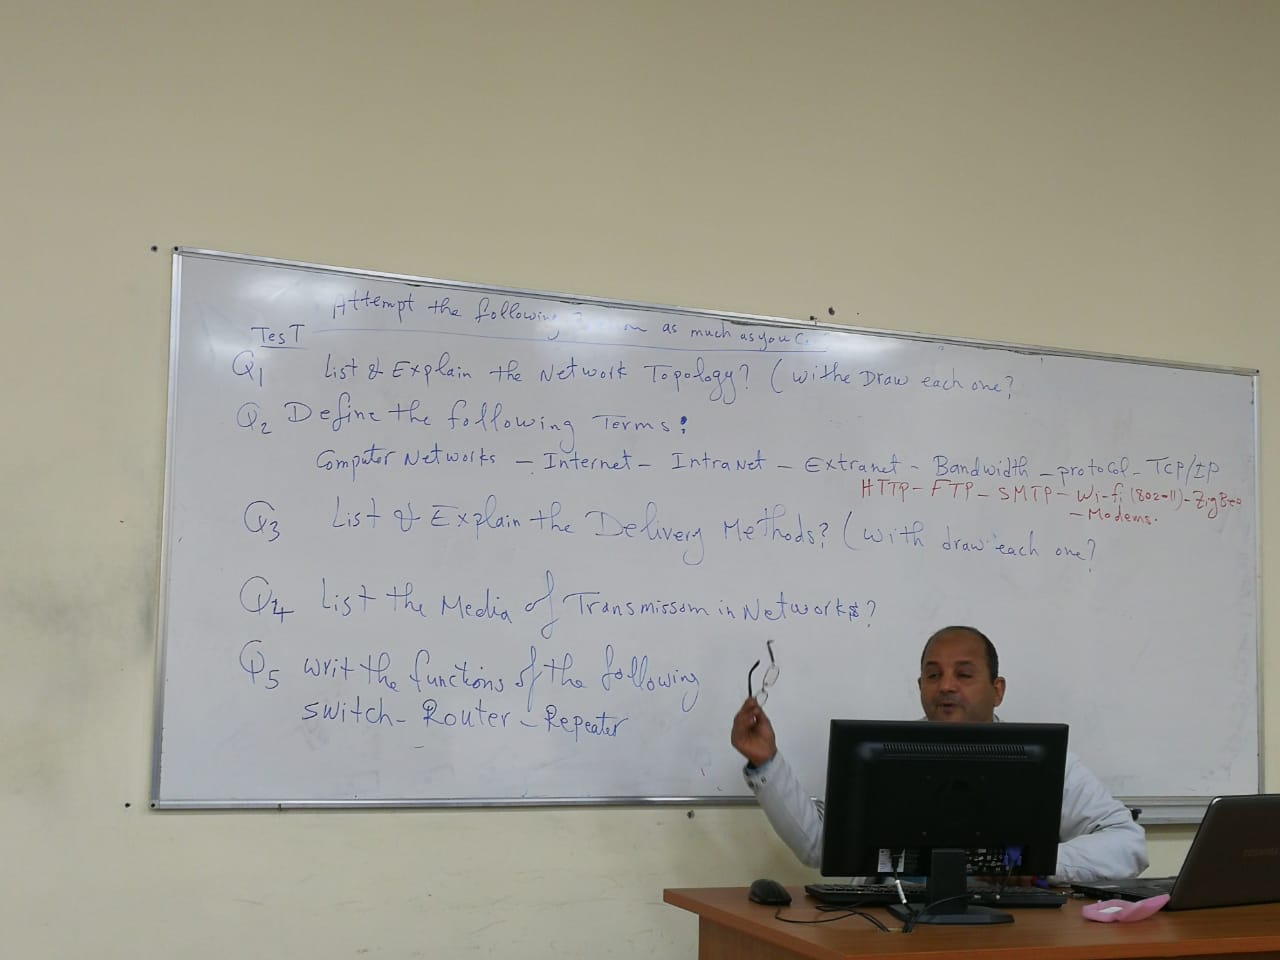 Attempt the following as much as you
TesT
Q1 List & Explain the Network Topology? (withe Draw each one?
Q2 Define the following Terms:
Computer Networks - Internet - Intranet - Extranet - Bandwidth - protocol - TCP/IP
HTTP - FTP - SMTP - Wi-fi (802-11) - ZigBee
- Modems.
Q3 List & Explain the Delivery Methods? (with draw each one?
Q4 List the Media of Transmissom in Networks?
Q5 writ the functions of the following
switch - Router - Repeater